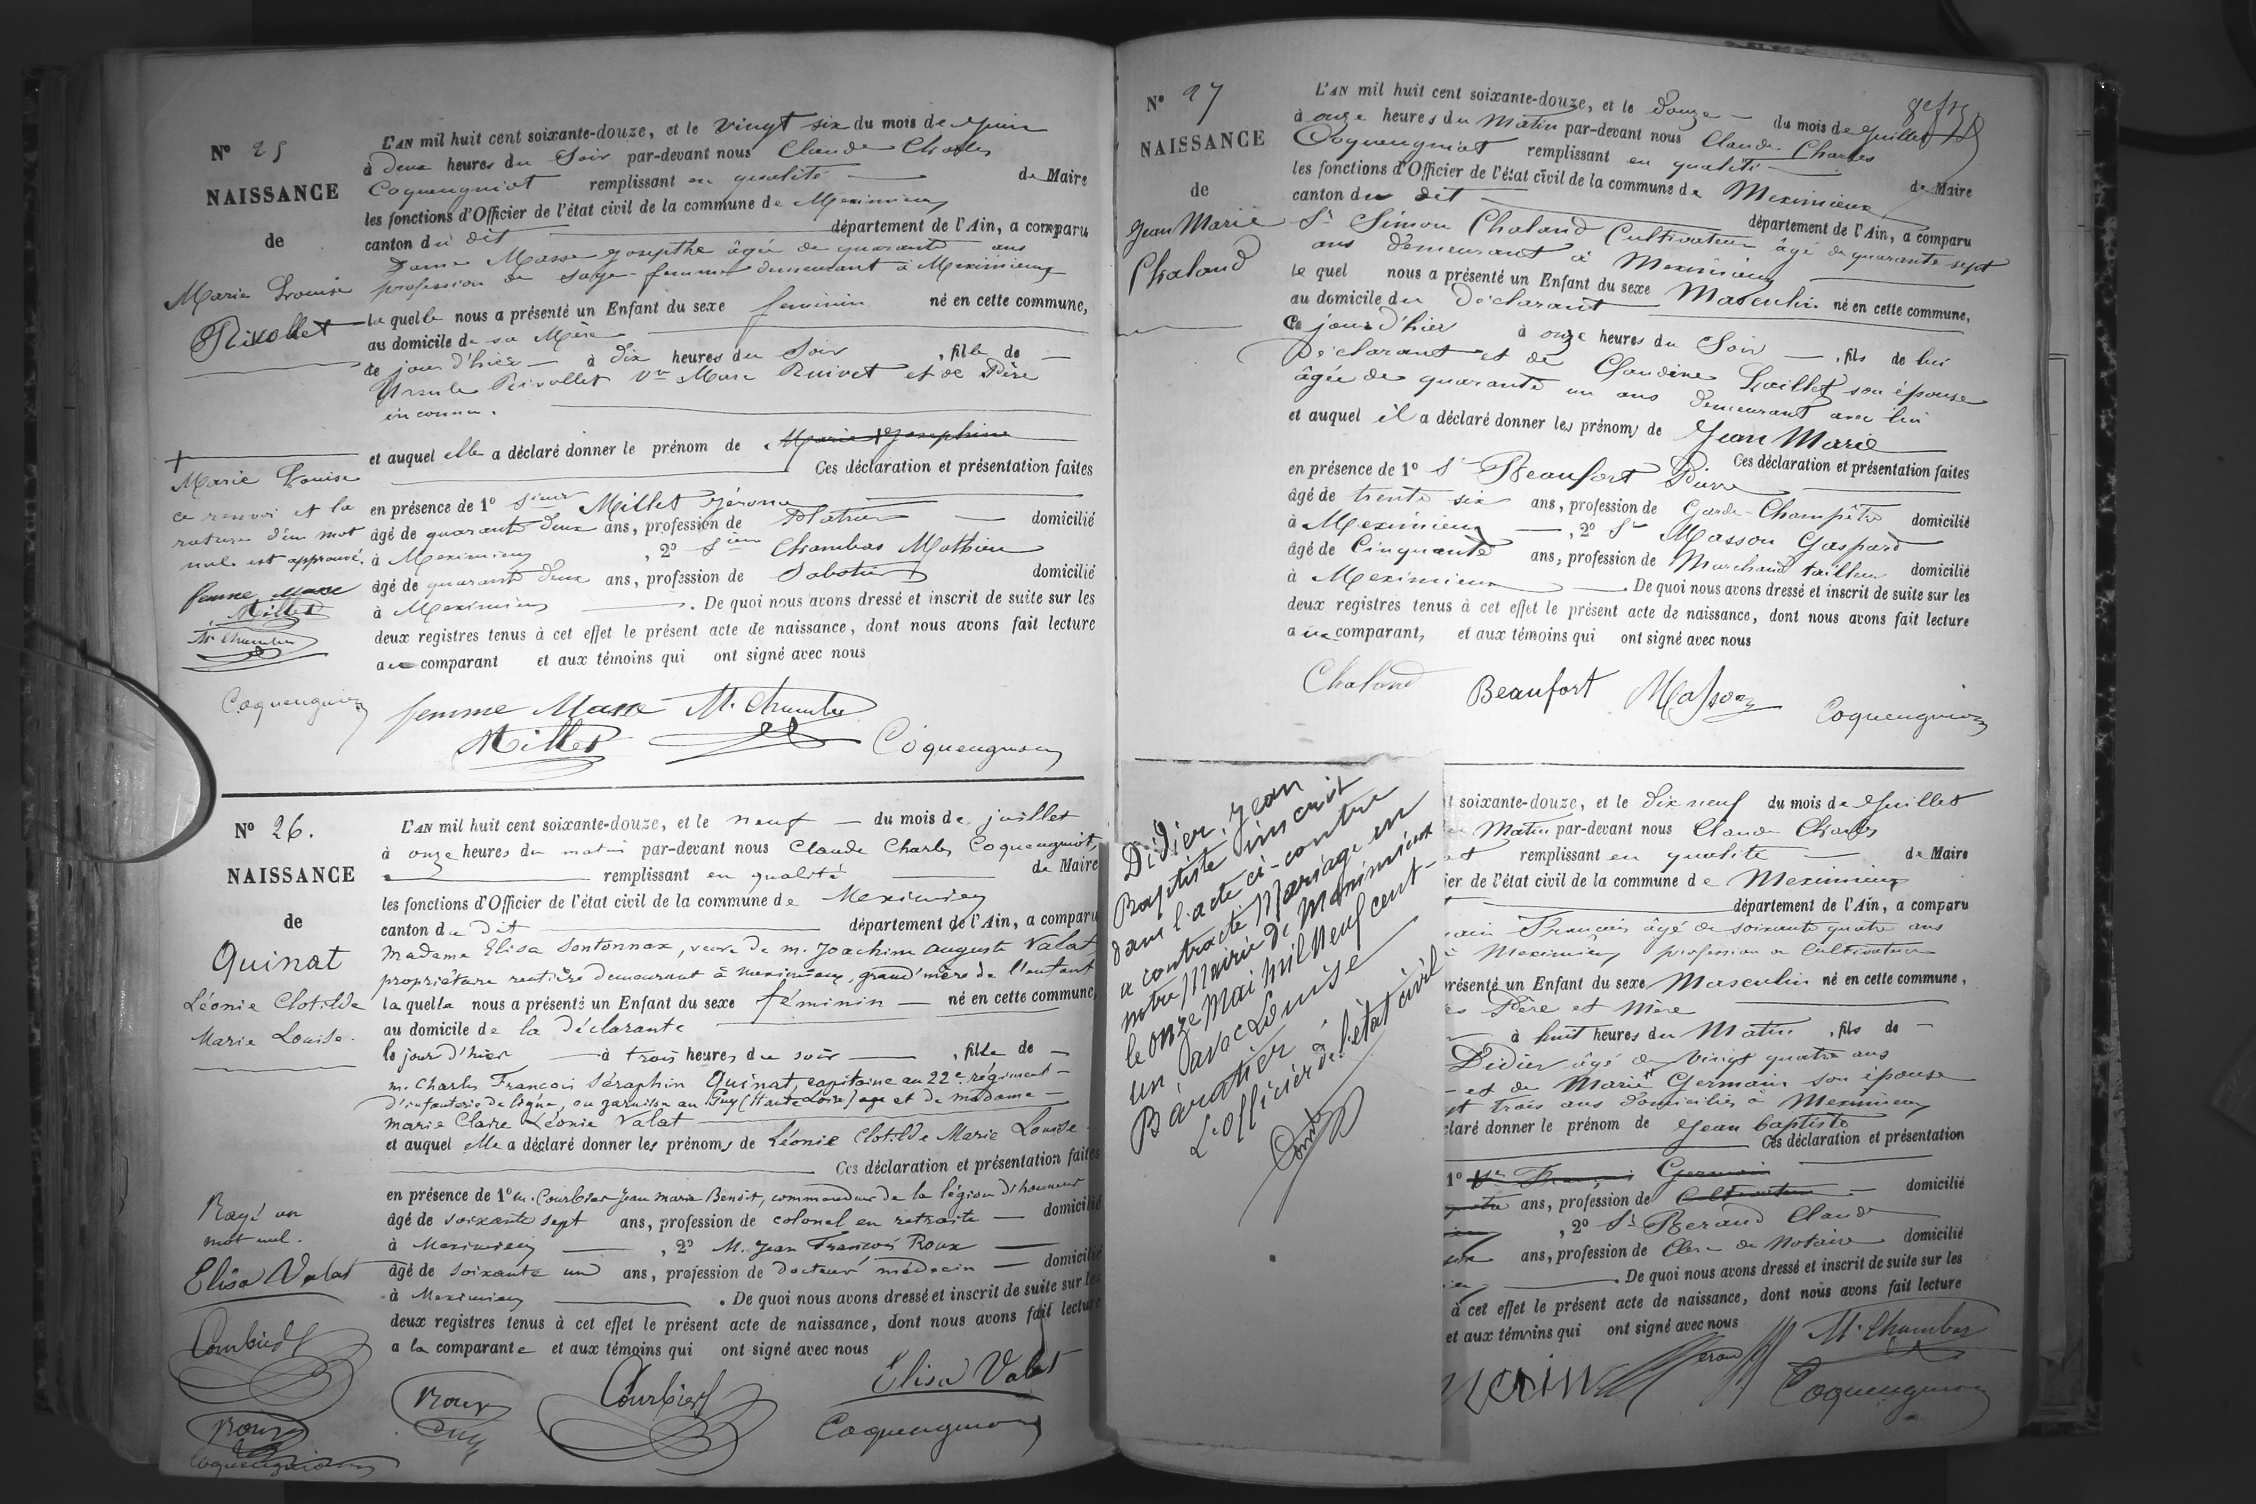 N° 25
NAISSANCE
de
Marie Louise
Rivollet
L'AN mil huit cent soixante-douze, et le vingt six du mois de Juin
à deux heures du Soir par-devant nous Claude Charles
Coquengniot remplissant en qualité de Maire
les fonctions d'Officier de l'état civil de la commune de Meximieux
canton du dit département de l'Ain, a comparu
Dame Masse Josepthe âgée de quarante ans
profession de Sage-femme demeurant à Meximieux
la quelle nous a présenté un Enfant du sexe feminin né en cette commune,
au domicile de sa Mère
le jour d'hier à dix heures du Soir, fille de
Ursule Rivollet Vve Marc Ruivet et de Père
inconnu.
et auquel elle a déclaré donner le prénom de Marie Josephine
Ces déclaration et présentation faites
en présence de 1° Sieur Millet Jérome
âgé de quarante deux ans, profession de Platrier domicilié
à Meximieux, 2° Sieur Chambas Mathieu
âgé de quarante deux ans, profession de Sabotier domicilié
à Meximieux. De quoi nous avons dressé et inscrit de suite sur les
deux registres tenus à cet effet le présent acte de naissance, dont nous avons fait lecture
au comparant et aux témoins qui ont signé avec nous
Marie Louise
ce renvoi et la
rature d'un mot
nul est approuvé.
femme Masse
Millet
M. Chambas
Coquengniot
femme Masse M. Chambas
Millet Coquengniot
N° 26.
NAISSANCE
de
Quinat
Léonie Clotilde
Marie Louise.
L'AN mil huit cent soixante-douze, et le neuf du mois de juillet
à onze heures du matin par-devant nous Claude Charles Coquengniot,
remplissant en qualité de Maire
les fonctions d'Officier de l'état civil de la commune de Meximieux
canton du Dit département de l'Ain, a comparu
Madame Elisa Sontonnax, veuve de m. Joachim Auguste Valat,
propriétaire rentière demeurant à Meximieux, grand'mère de l'enfant
la quelle nous a présenté un Enfant du sexe féminin né en cette commune,
au domicile de la déclarante
le jour d'hier à trois heures du soir, fille de
m. Charles François Séraphin Quinat, capitaine au 22e régiment
d'infanterie de ligne, en garnison au Puy (Haute Loire) age et de madame
marie Claire Léonie Valat
et auquel elle a déclaré donner les prénoms de Léonie Clotilde Marie Louise.
Ces déclaration et présentation faites
en présence de 1° m. Courbier Jean Marie Benoit, commandeur de la légion d'honneur
âgé de soixante sept ans, profession de colonel en retraite domicilié
à Meximieux, 2° M. Jean François Roux
âgé de soixante un ans, profession de docteur médecin domicilié
à Meximieux. De quoi nous avons dressé et inscrit de suite sur les
deux registres tenus à cet effet le présent acte de naissance, dont nous avons fait lecture
a la comparante et aux témoins qui ont signé avec nous
Rayé un
mot nul.
Elisa Valat
Courbier
Roux
Coquengniot
Roux Courbier Elisa Valat
Coquengniot
N° 27
NAISSANCE
de
Jean Marie
Chaland
L'AN mil huit cent soixante-douze, et le Douze du mois de Juillet
à onze heures du Matin par-devant nous Claude Charles
Coquengniot remplissant en qualité de Maire
les fonctions d'Officier de l'état civil de la commune de Meximieux
canton du dit département de l'Ain, a comparu
Sr Simon Chaland Cultivateur âgé de quarante sept
ans demeurant à Meximieux
le quel nous a présenté un Enfant du sexe Masculin né en cette commune,
au domicile du Déclarant
Ce jour d'hier à onze heures du Soir, fils de lui
Déclarant et de Claudine Laillet son épouse
âgée de quarante un ans demeurant avec lui
et auquel il a déclaré donner les prénoms de Jean Marie
Ces déclaration et présentation faites
en présence de 1° Sr Beaufort Pierre
âgé de trente six ans, profession de Garde-Champêtre domicilié
à Meximieux, 2° Sr Masson Gaspard
âgé de Cinquante ans, profession de Marchand tailleur domicilié
à Meximieux. De quoi nous avons dressé et inscrit de suite sur les
deux registres tenus à cet effet le présent acte de naissance, dont nous avons fait lecture
au comparant, et aux témoins qui ont signé avec nous
Chaland Beaufort Masson Coquengniot
Didier, Jean
Baptiste inscrit
dans l'acte ci-contre
a contracté Mariage en
notre Mairie de Meximieux
le onze Mai mil neuf cent-
un avec Louise
Baratier
L'officier de l'état civil
t soixante-douze, et le Dix neuf du mois de Juillet
Matin par-devant nous Claude Charles
remplissant en qualité de Maire
ier de l'état civil de la commune de Meximieux
département de l'Ain, a comparu
François âgé de soixante quatre ans
Meximieux profession de Cultivateur
résenté un Enfant du sexe Masculin né en cette commune,
Père et Mère
à huit heures du Matin, fils de
Didier âgé de Vingt quatre ans
et de Marie Germain son épouse
trois ans domiciliés à Meximieux
claré donner le prénom de Jean baptiste
Ces déclaration et présentation
1° Germain
ans, profession de Cultivateur domicilié
, 2° Sr Beraud Claude
ans, profession de Clerc de Notaire domicilié
. De quoi nous avons dressé et inscrit de suite sur les
à cet effet le présent acte de naissance, dont nous avons fait lecture
et aux témoins qui ont signé avec nous
M. Chambas
Coquengniot